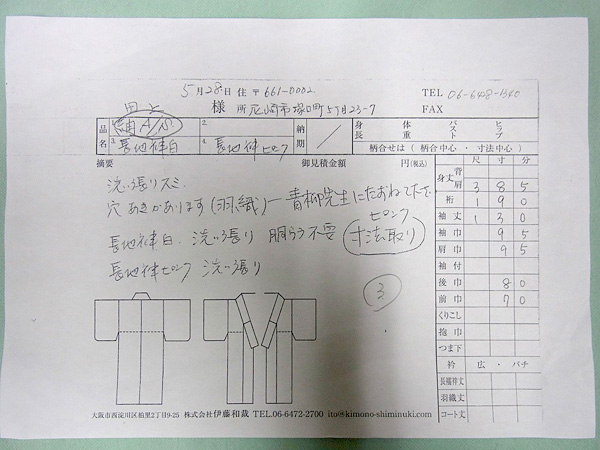 5月28日 住 〒661-0002 TEL
田上 様 所 尼崎市塚口町5丁目23-7 FAX
品名 紬 A/ 2. 納期 身長 体重 バスト ヒップ
3. 長襦袢白 4. 長襦袢ピンク 柄合せは(柄合中心・寸法中心)
摘要 御見積金額 円(税込) 尺 寸 分
洗い張りスミ 身丈 背肩 3 8 5
穴あきがあります(羽織)ー青柳先生に 裄 1 9 0
ピンク 袖丈 1 3 0
長襦袢白 洗い張り 胴うら不要 寸法取り 袖巾 9 5
長襦袢ピンク 洗い張り 肩巾 9 5
袖付
3 後巾 8 0
前巾 7 0
くりこし
抱巾
つま下
衿 広・バチ
長襦袢丈
羽織丈
コート丈
大阪市西淀川区柏里2丁目9-25 株式会社伊藤和裁 TEL.06-6472-2700 ito@kimono-shiminuki.com